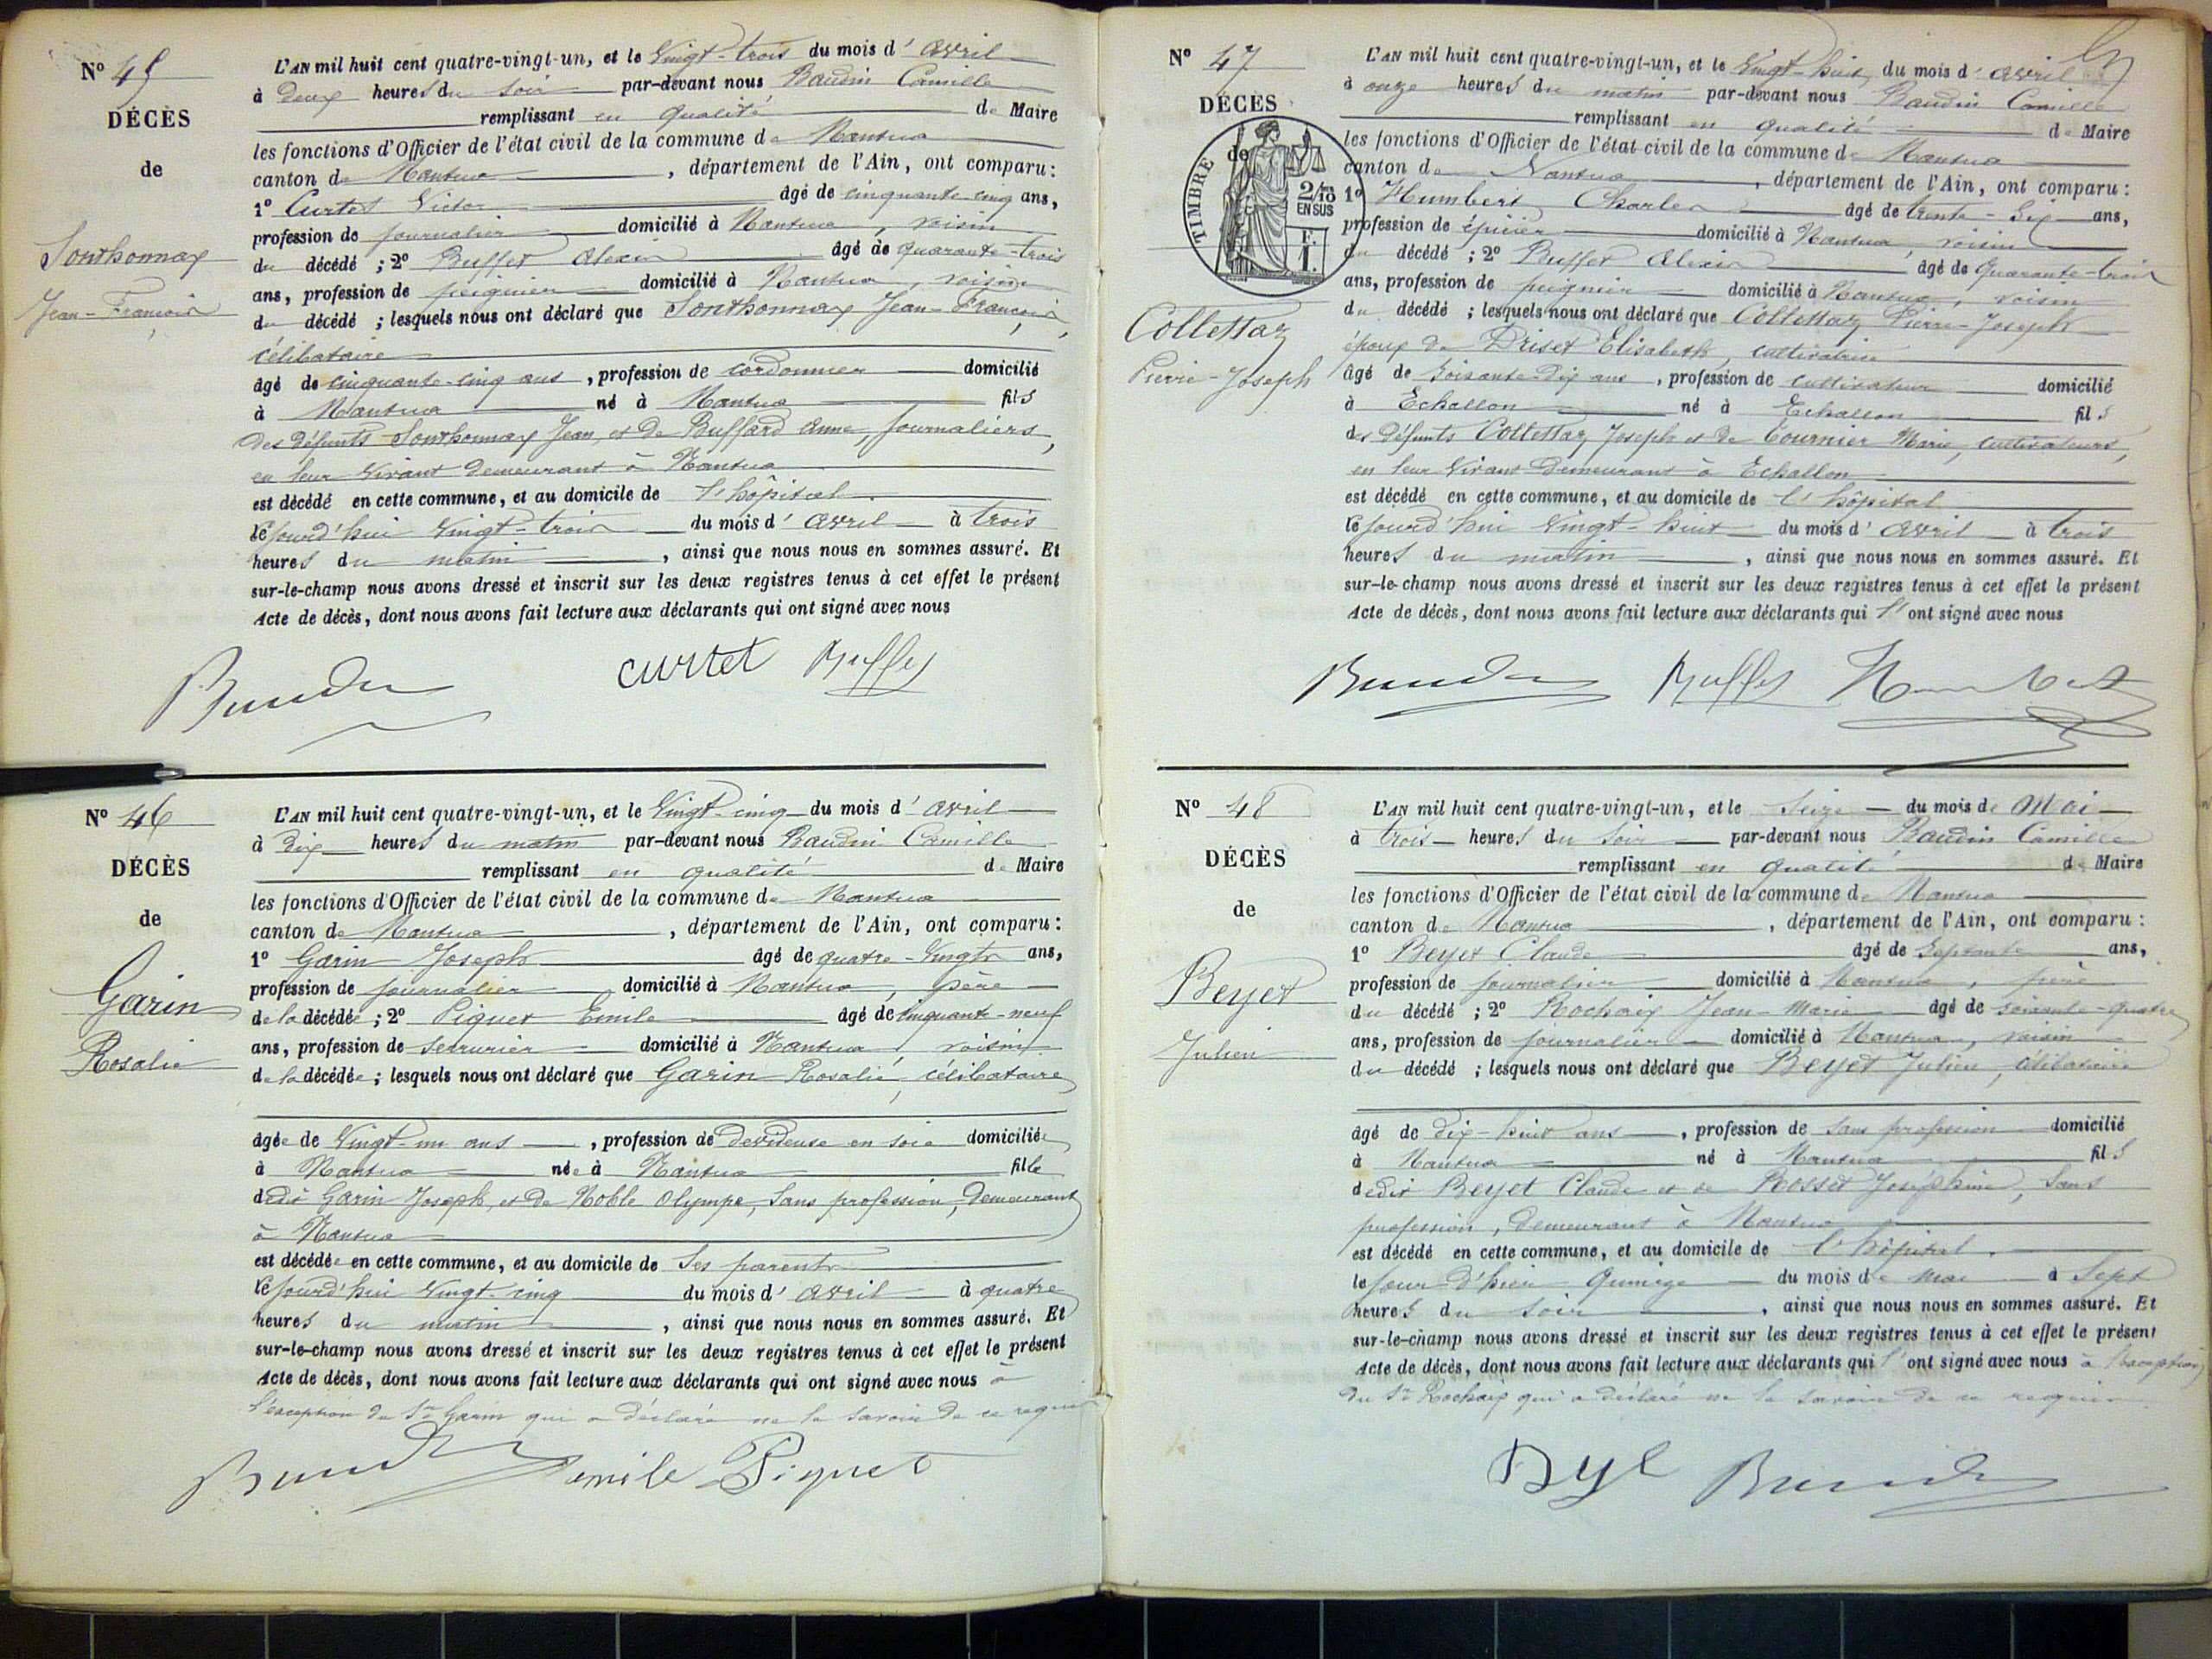 Nº 45
DÉCÈS
de
Sonthonnax
Jean-François
L'AN mil huit cent quatre-vingt-un, et le Vingt-trois du mois d'avril
à deux heures du soir par-devant nous Baudin Camille
remplissant en qualité de Maire
les fonctions d'Officier de l'état civil de la commune de Nantua
canton de Nantua, département de l'Ain, ont comparu:
1º Curtet Victor âgé de cinquante-cinq ans,
profession de journalier domicilié à Nantua, voisin
du décédé ; 2º Buffet Alexis âgé de quarante-trois
ans, profession de peignier domicilié à Nantua, voisin
du décédé ; lesquels nous ont déclaré que Sonthonnax Jean-François,
célibataire
âgé de cinquante-cinq ans, profession de cordonnier domicilié
à Nantua né à Nantua fils
des défunts Sonthonnax Jean, et de Buffard Anne, journaliers,
en leur vivant demeurant à Nantua
est décédé en cette commune, et au domicile de l'hôpital.
le jourd'hui Vingt-trois du mois d'avril à trois
heures du matin, ainsi que nous nous en sommes assuré. Et
sur-le-champ nous avons dressé et inscrit sur les deux registres tenus à cet effet le présent
Acte de décès, dont nous avons fait lecture aux déclarants qui ont signé avec nous
Baudin curtet Buffet
Nº 46
DÉCÈS
de
Garin
Rosalie
L'AN mil huit cent quatre-vingt-un, et le Vingt-cinq du mois d'avril
à dix heures du matin par-devant nous Baudin Camille
remplissant en qualité de Maire
les fonctions d'Officier de l'état civil de la commune de Nantua
canton de Nantua, département de l'Ain, ont comparu:
1º Garin Joseph âgé de quatre-vingts ans,
profession de journalier domicilié à Nantua, père
de la décédée ; 2º Piquet Emile âgé de cinquante-neuf
ans, profession de serrurier domicilié à Nantua, voisin
de la décédée ; lesquels nous ont déclaré que Garin Rosalie, célibataire
âgée de Vingt-un ans, profession de dévideuse en soie domiciliée
à Nantua née à Nantua fille
dedit Garin Joseph, et de Noble Olympe, sans profession, demeurant
à Nantua
est décédée en cette commune, et au domicile de ses parents
le jourd'hui Vingt-cinq du mois d'avril à quatre
heures du matin, ainsi que nous nous en sommes assuré. Et
sur-le-champ nous avons dressé et inscrit sur les deux registres tenus à cet effet le présent
Acte de décès, dont nous avons fait lecture aux déclarants qui ont signé avec nous à
l'exception du Sr Garin qui a déclaré ne le savoir de ce requis
Baudin emile Piquet
Nº 47
DÉCÈS
de
TIMBRE
2/10
EN SUS
F.
1.
Collettaz
Pierre-Joseph
L'AN mil huit cent quatre-vingt-un, et le Vingt-huit du mois d'avril
à onze heures du matin par-devant nous Baudin Camille
remplissant en qualité de Maire
les fonctions d'Officier de l'état civil de la commune de Nantua
canton de Nantua, département de l'Ain, ont comparu:
1º Humbert Charles âgé de trente-six ans,
profession de épicier domicilié à Nantua voisin
du décédé ; 2º Buffet Alexis âgé de quarante-trois
ans, profession de peignier domicilié à Nantua, voisin
du décédé ; lesquels nous ont déclaré que Collettaz Pierre-Joseph
époux de Driset Elisabeth, cultivatrice
âgé de soixante-dix ans, profession de cultivateur domicilié
à Echallon né à Echallon fils
des défunts Collettaz Joseph et de Tournier Marie, cultivateurs,
en leur vivant demeurant à Echallon
est décédé en cette commune, et au domicile de l'hôpital
le jourd'hui Vingt-huit du mois d'avril à trois
heures du matin, ainsi que nous nous en sommes assuré. Et
sur-le-champ nous avons dressé et inscrit sur les deux registres tenus à cet effet le présent
Acte de décès, dont nous avons fait lecture aux déclarants qui l'ont signé avec nous
Baudin Buffet Humbert
Nº 48
DÉCÈS
de
Beyet
Julien
L'AN mil huit cent quatre-vingt-un, et le Seize du mois de Mai
à trois heures du soir par-devant nous Baudin Camille
remplissant en qualité de Maire
les fonctions d'Officier de l'état civil de la commune de Nantua
canton de Nantua, département de l'Ain, ont comparu:
1º Beyet Claude âgé de Septante ans,
profession de journalier domicilié à Nantua, père
du décédé ; 2º Rochaix Jean-Marie âgé de soixante-quatre
ans, profession de journalier domicilié à Nantua, voisin
du décédé ; lesquels nous ont déclaré que Beyet Julien, célibataire
âgé de dix-huit ans, profession de sans profession domicilié
à Nantua né à Nantua fils
dedit Beyet Claude et de Rosset Joséphine, sans
profession, demeurant à Nantua
est décédé en cette commune, et au domicile de l'hôpital.
le jour d'hier quinze du mois de mai à sept
heures du soir, ainsi que nous nous en sommes assuré. Et
sur-le-champ nous avons dressé et inscrit sur les deux registres tenus à cet effet le présent
Acte de décès, dont nous avons fait lecture aux déclarants qui l'ont signé avec nous à l'exception
du Sr Rochaix qui a déclaré ne le savoir de ce requis
Baudin